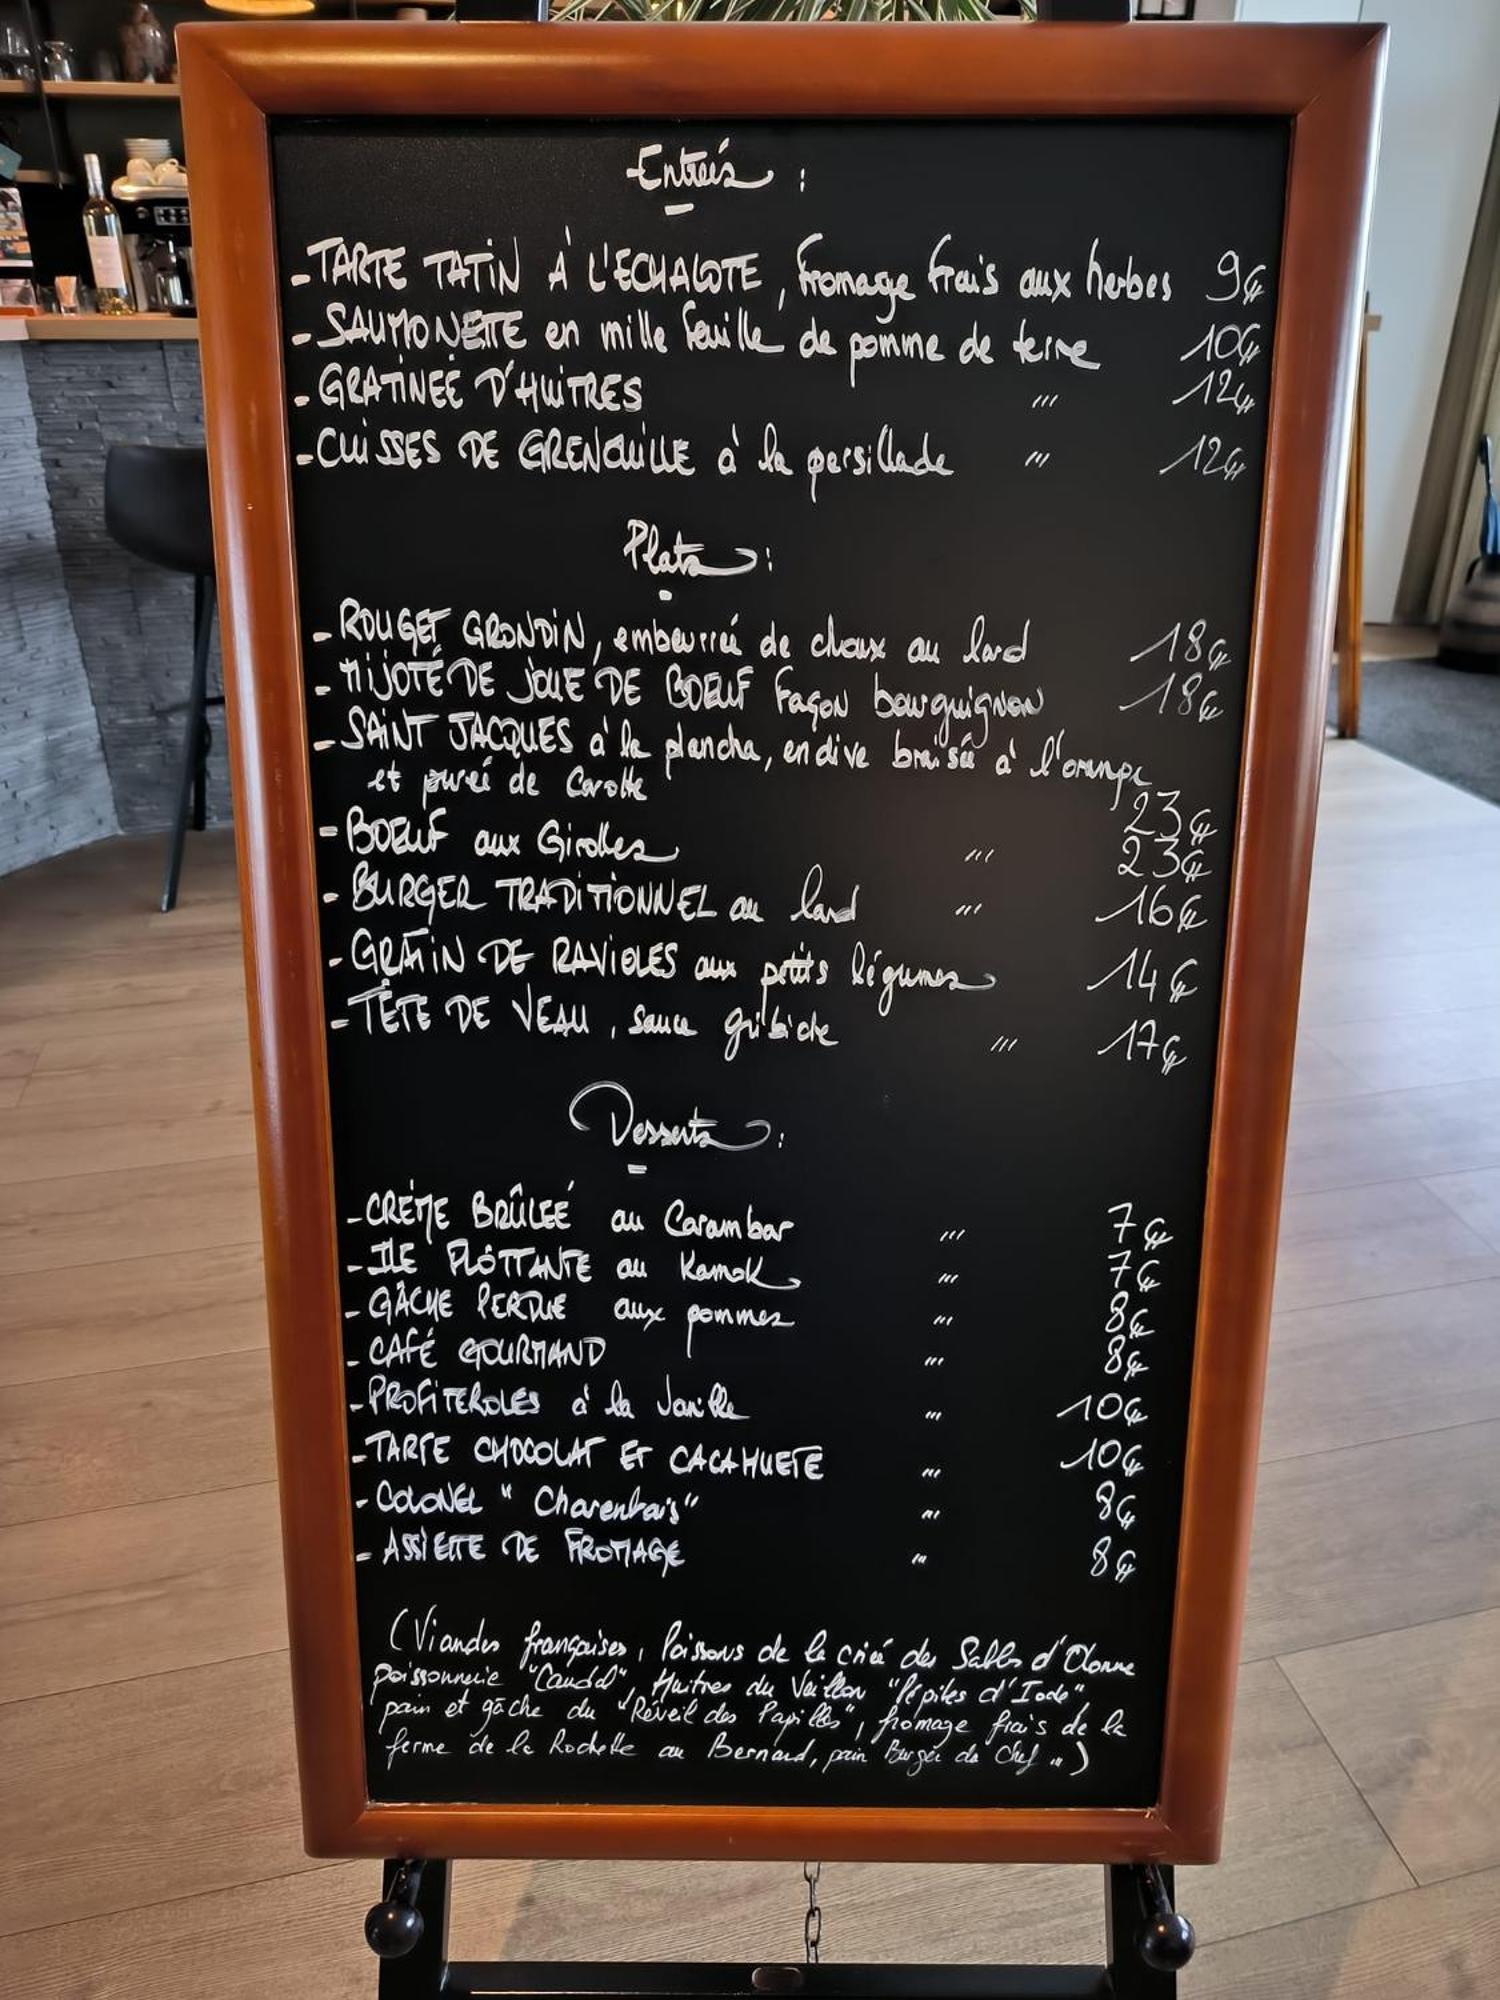 Entrées :
- TARTE TATIN À L'ECHALOTE, fromage frais aux herbes 9€
- SAUMONETTE en mille feuille de pomme de terre 10€
- GRATINEÉ D'HUITRES ''' 12€
- CUISSES DE GRENOUILLE à la persillade ''' 12€
Plats :
- ROUGET GRONDIN, embeurrée de choux au lard 18€
- MIJOTÉ DE JOUE DE BOEUF façon bourguignon 18€
- SAINT JACQUES à la plancha, endive braisée à l'orange
et purée de Carotte 23€
- BOEUF aux Girolles ''' 23€
- BURGER TRADITIONNEL au lard ''' 16€
- GRATIN DE RAVIOLES aux petits légumes 14€
- TÊTE DE VEAU, sauce gribiche ''' 17€
Desserts :
- CRÈME BRÛLEÉ au Carambar ''' 7€
- ILE FLOTTANTE au Kamok ''' 7€
- GÂCHE PERDUE aux pommes ''' 8€
- CAFÉ GOURMAND ''' 8€
- PROFITEROLES à la Vanille ''' 10€
- TARTE CHOCOLAT ET CACAHUETE ''' 10€
- COLONEL "Charentais" ''' 8€
- ASSIETTE DE FROMAGE ''' 8€
(Viandes françaises, Poissons de la criée des Sables d'Olonne
poissonnerie "Caudal", Huitres du Veillon "Pépites d'Iode"
pain et gâche du "Réveil des Papilles", fromage frais de la
ferme de la Rochette au Bernard, pain Burger du Chef ...)